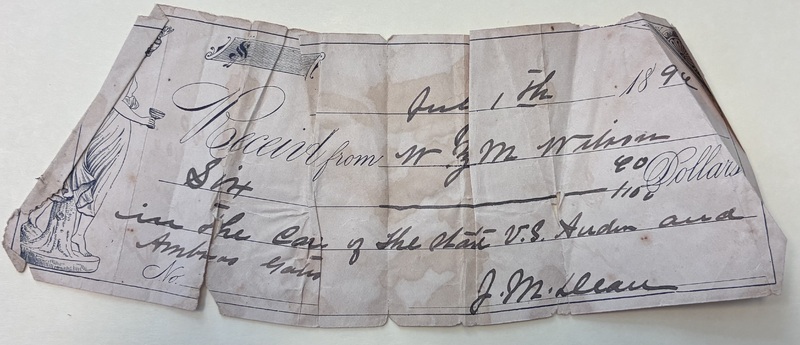 1th 1892
Received from W M Wilson
Six 40/100 Dollars
in the Case of the State V.S. Anders and
Ambros Yates
No.
J. M. Dean